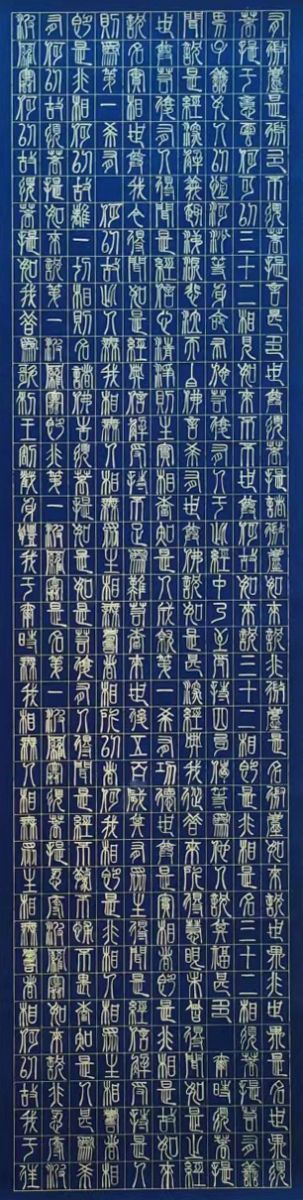 有微塵是微多不須菩提言甚多世尊須菩提諸微塵如來說非微塵是名微塵如來說世界非世界是名世界須
菩提于意云何可以三十二相見如來不不也尊何故如來說三十二相即是非相是名三十二相須菩提若有善
男子善女人以恒河沙等身命布施若復有人于此經中乃至受持四句偈等為他人說其福甚多 爾時須菩提
聞說是經深解義趣涕淚悲泣而白佛言希有世尊佛說如是甚深經典我從昔來所得慧眼未曾得聞如是之經
世尊若復有人得聞是經信心清淨則生實相當知是人成就第一希有功德世尊是實相者即是非相是故如來
說名實相世尊我今得聞如是經典信解受持不足為難若當來世後五百歲其有眾生得聞是經信解受持是人
則為第一希有 何以故此人無我相無人相無眾生相無壽者相所以者何我相即是非相人相眾生相壽者相
即是非相何以故離一切相則名諸佛告須菩提如是如是若復有人得聞是經不驚不怖不畏當知是人甚為希
有何以故須菩提如來說第一波羅蜜即非第一波羅蜜是名第一波羅蜜須菩提忍辱波羅蜜如來說非忍辱波
波羅蜜何以故須菩提如我昔為歌利王割截身體我于爾時無我相無人相無眾生相無壽者相何以故我于往